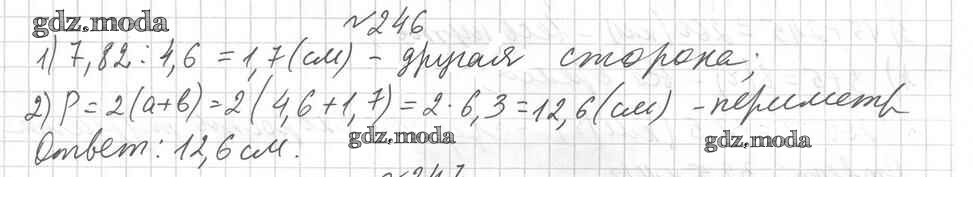 gdz.moda
№246
1) 7,82 : 4,6 = 1,7 (см) - другая сторона;
2) P = 2(a+b) = 2(4,6+1,7) = 2·6,3 = 12,6 (см) - периметр
gdz.moda gdz.moda
Ответ: 12,6 см.
№247